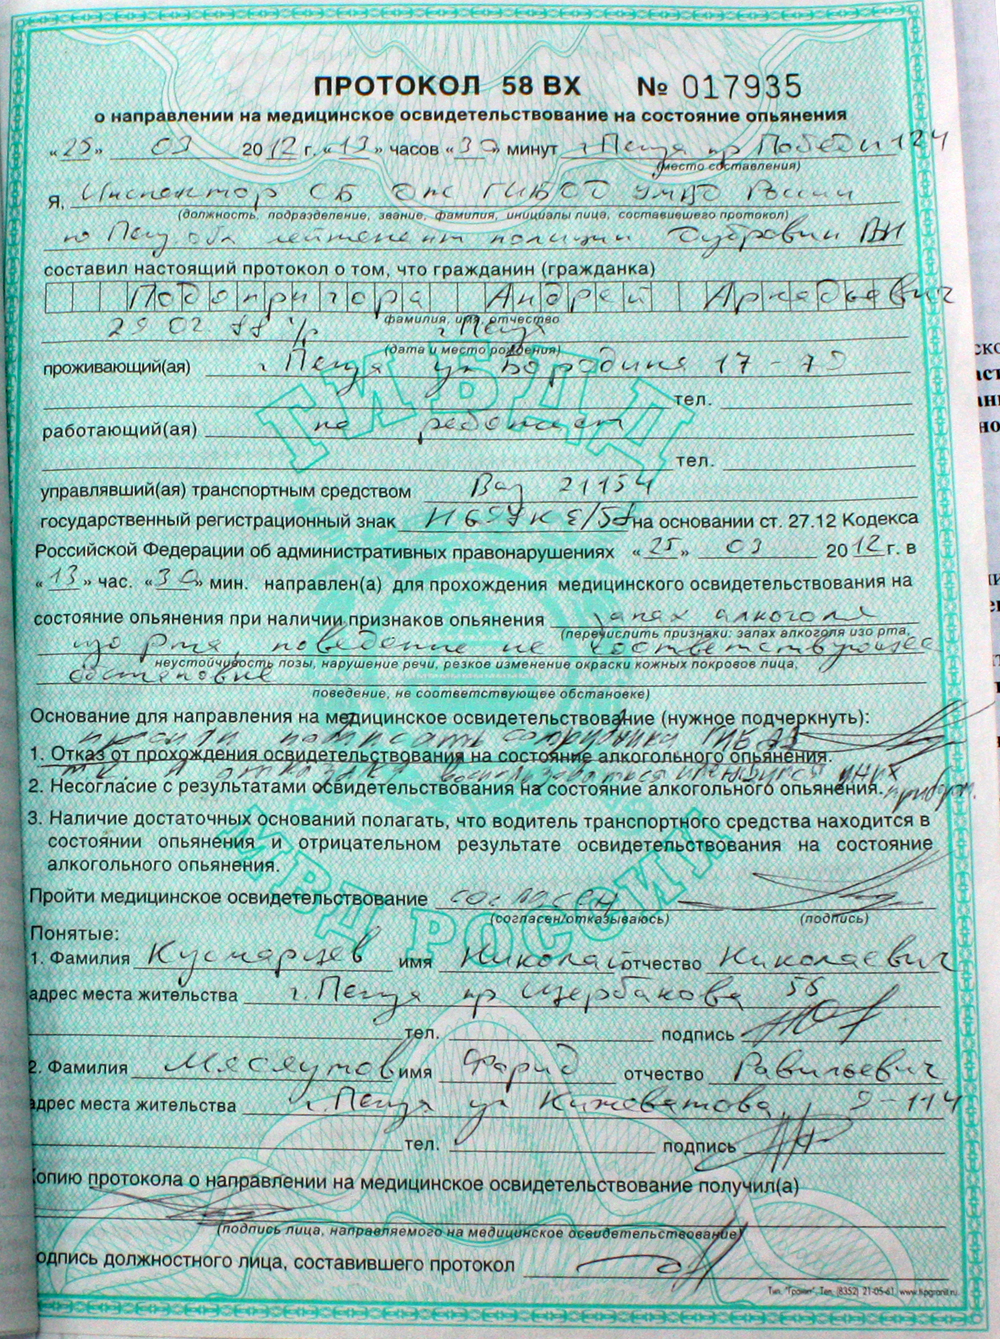 ПРОТОКОЛ 58 ВХ № 017935
о направлении на медицинское освидетельствование на состояние опьянения
«25» 03 2012 г. «13» часов «30» минут г. Пенза пр Победы 124
(место составления)
Я, Инспектор СБ ДПС ГИБДД УМВД России
(должность, подразделение, звание, фамилия, инициалы лица, составившего протокол)
по Пенз. обл лейтенант полиции Дубровин
составил настоящий протокол о том, что гражданин (гражданка)
Подопригора Андрей Аркадьевич
фамилия, имя, отчество
29 02 88 г/р г. Пенза
(дата и место рождения)
проживающий(ая) г. Пенза ул Бородина 17-79
тел.
работающий(ая) не работает
тел.
управлявший(ая) транспортным средством Ваз 21154
государственный регистрационный знак на основании ст. 27.12 Кодекса
Российской Федерации об административных правонарушениях «25» 03 2012 г. в
«13» час. «30» мин. направлен(а) для прохождения медицинского освидетельствования на
состояние опьянения при наличии признаков опьянения запах алкоголя
(перечислить признаки: запах алкоголя изо рта,
изо рта, поведение не соответствующее
неустойчивость позы, нарушение речи, резкое изменение окраски кожных покровов лица,
обстановке
поведение, не соответствующее обстановке)
Основание для направления на медицинское освидетельствование (нужное подчеркнуть):
1. Отказ от прохождения освидетельствования на состояние алкогольного опьянения.
2. Несогласие с результатами освидетельствования на состояние алкогольного опьянения.
3. Наличие достаточных оснований полагать, что водитель транспортного средства находится в
состоянии опьянения и отрицательном результате освидетельствования на состояние
алкогольного опьянения.
Пройти медицинское освидетельствование согласен
(согласен/отказываюсь) (подпись)
Понятые:
1. Фамилия Кусмарцев имя Николай отчество Николаевич
адрес места жительства г. Пенза пр Щербакова 55
тел. подпись
2. Фамилия имя Фарид отчество Равильевич
адрес места жительства г. Пенза ул Кижеватова 9-114
тел. подпись
Копию протокола о направлении на медицинское освидетельствование получил(а)
(подпись лица, направляемого на медицинское освидетельствование)
подпись должностного лица, составившего протокол
Тип. "Гранит", Тел. (8352) 21-05-61, www.kpgranit.ru
ГИБДД
МВД РОССИИ